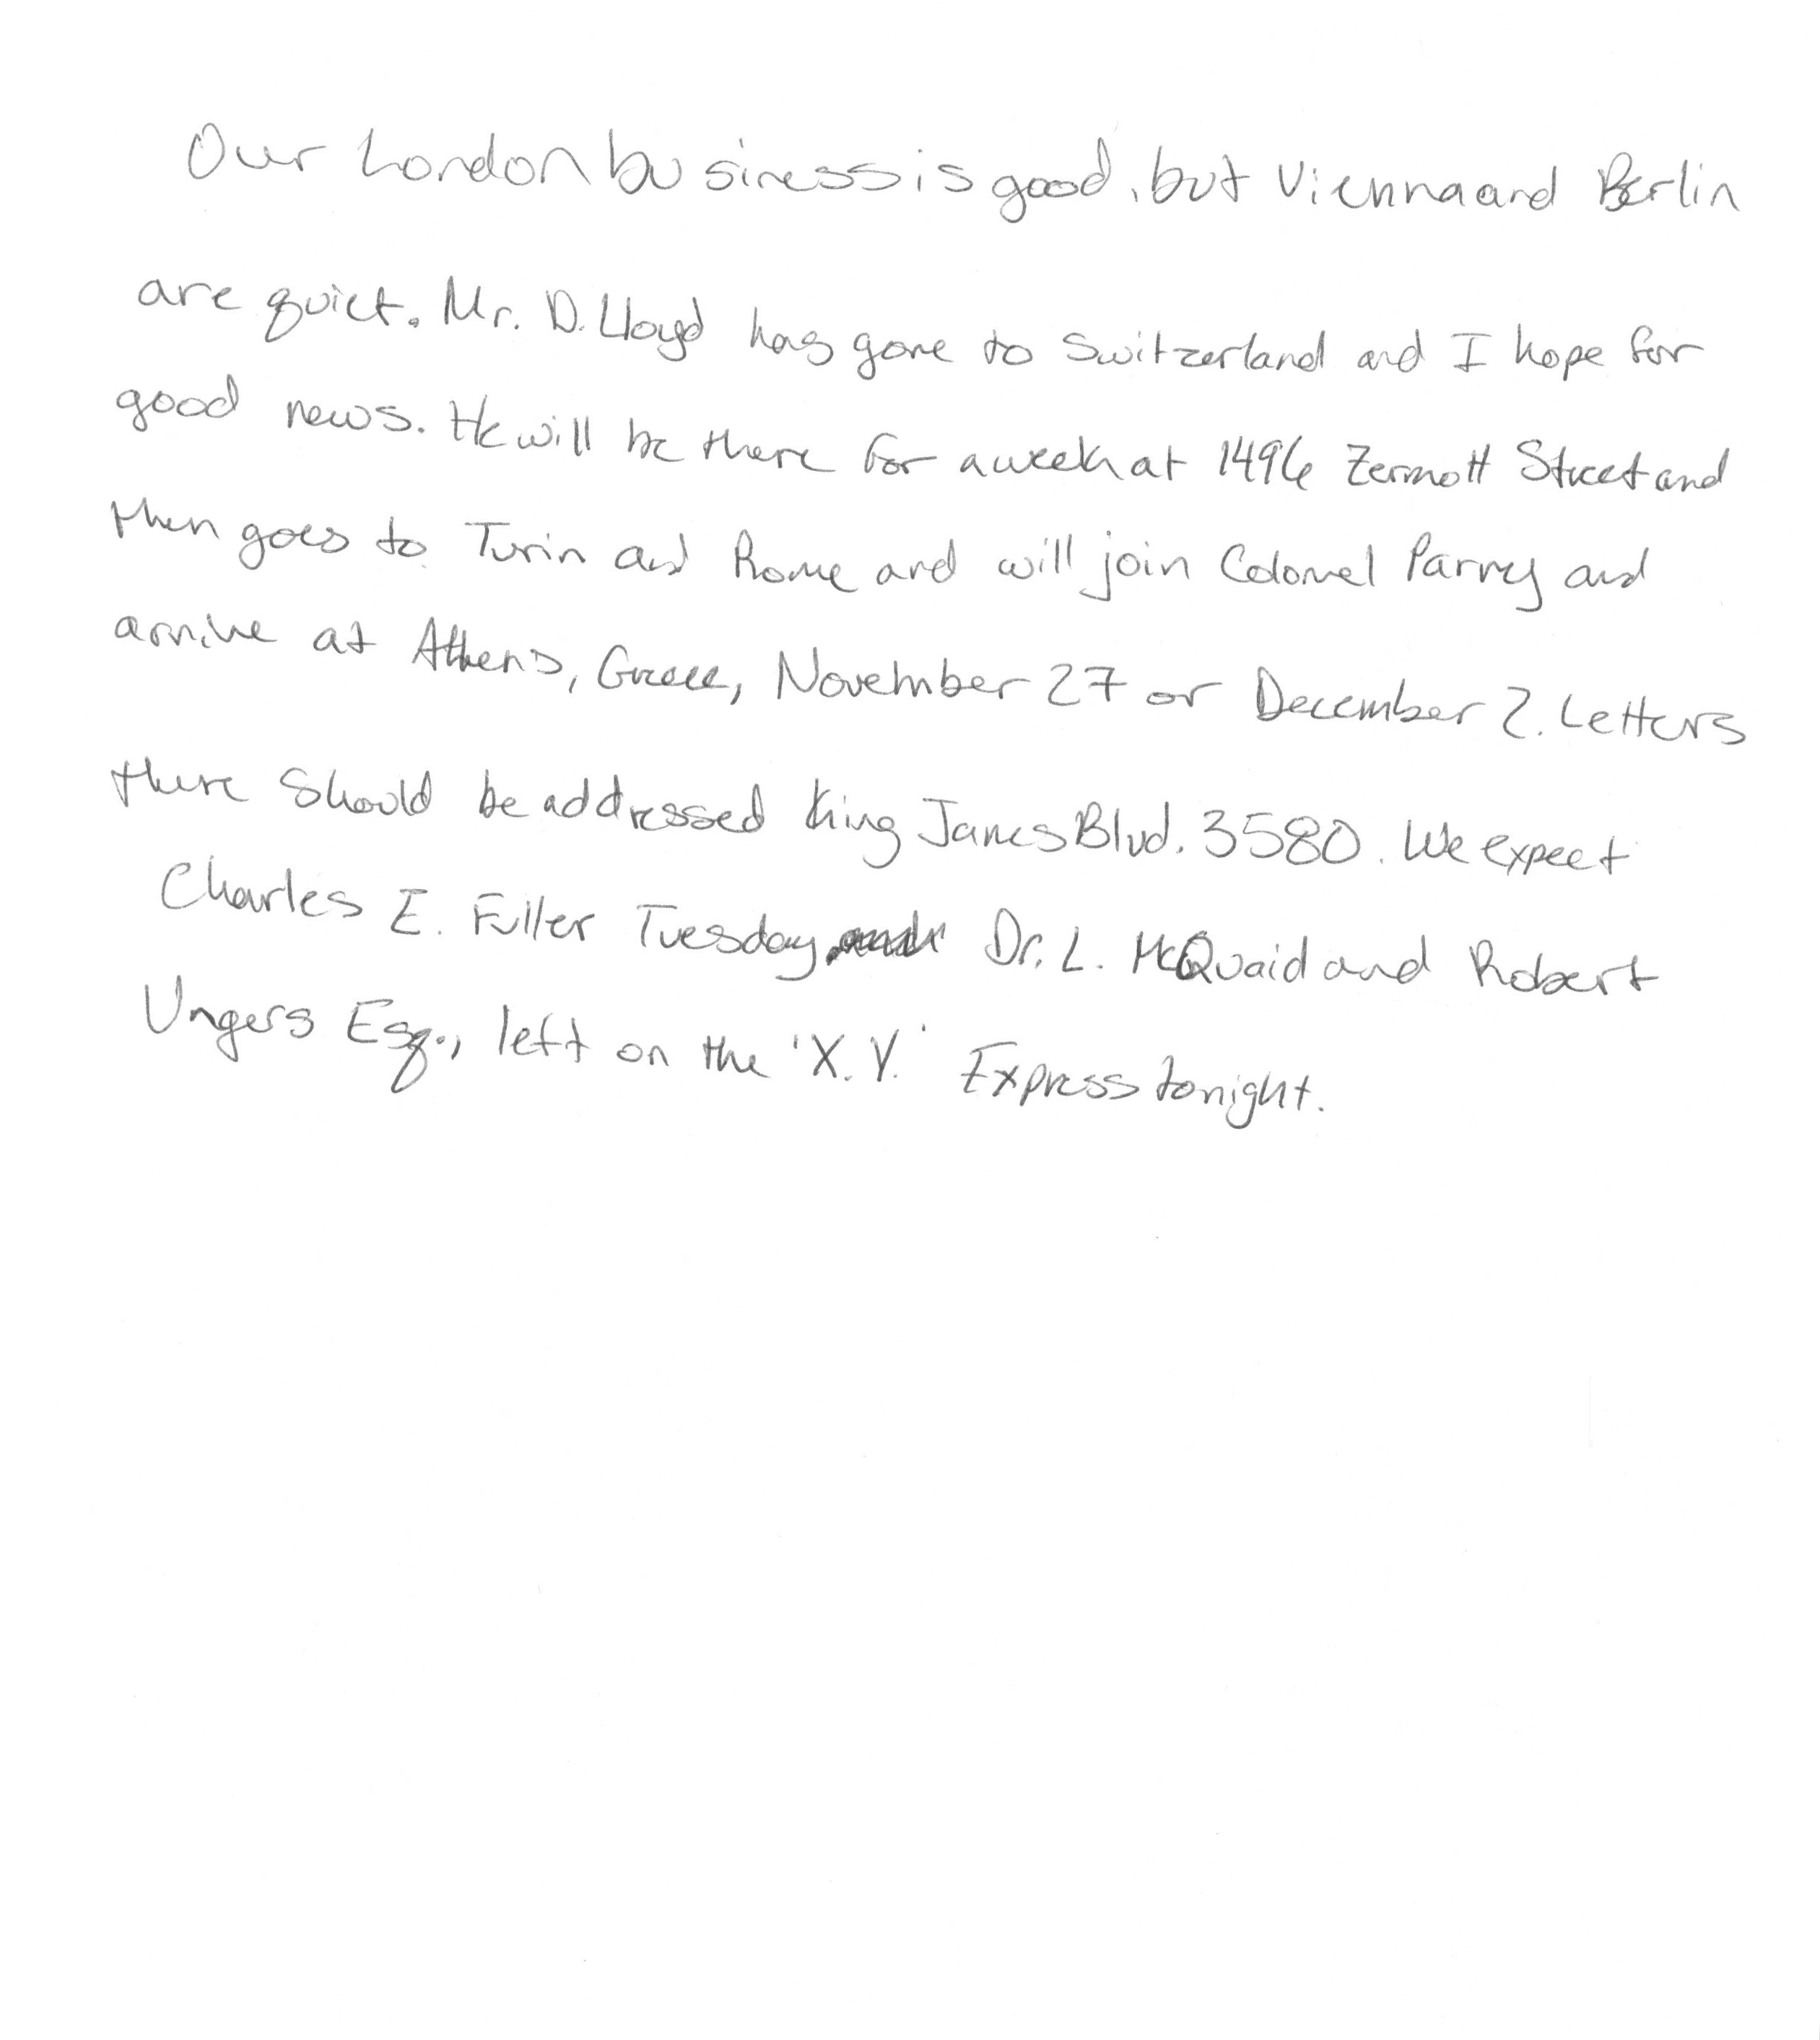 Our London business is good, but Vienna and Berlin
are quiet. Mr. D. Lloyd has gone to Switzerland and I hope for
good news. He will be there for a week at 1496 Zermott Street and
then goes to Turin and Rome and will join Colonel Parry and
arrive at Athens, Greece, November 27 or December 2. Letters
there should be addressed King James Blvd. 3580. We expect
Charles E. Fuller Tuesday. Dr. L. McQuaid and Robert
Ungers Esq., left on the 'X.Y.' Express tonight.